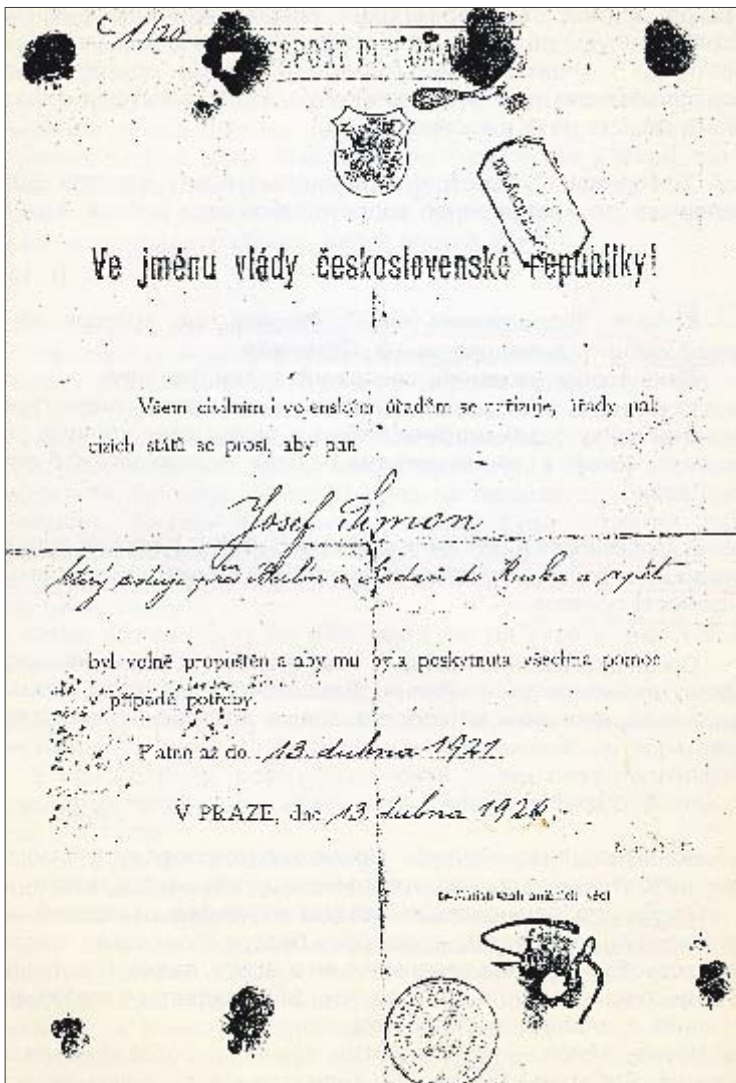 C 1/20
Ve jménu vlády československé republiky!
Všem civilním i vojenským úřadům se nařizuje, úřady pak
cizích států se prosí, aby pan
Josef Šimon
který cestuje přes Berlín a do Ruska a zpět
byl volně propuštěn a aby mu byla poskytnuta všechna pomoc
v případě potřeby.
Platno až do 13. dubna 1921
V PRAZE, dne 13. dubna 1920.
věcí